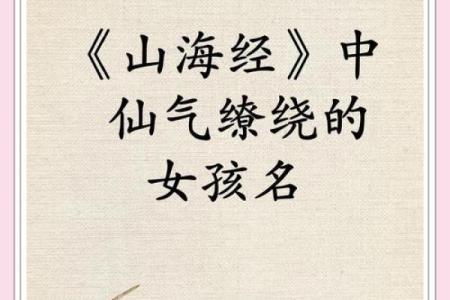 《山海经》中
仙气缭绕的
女孩名